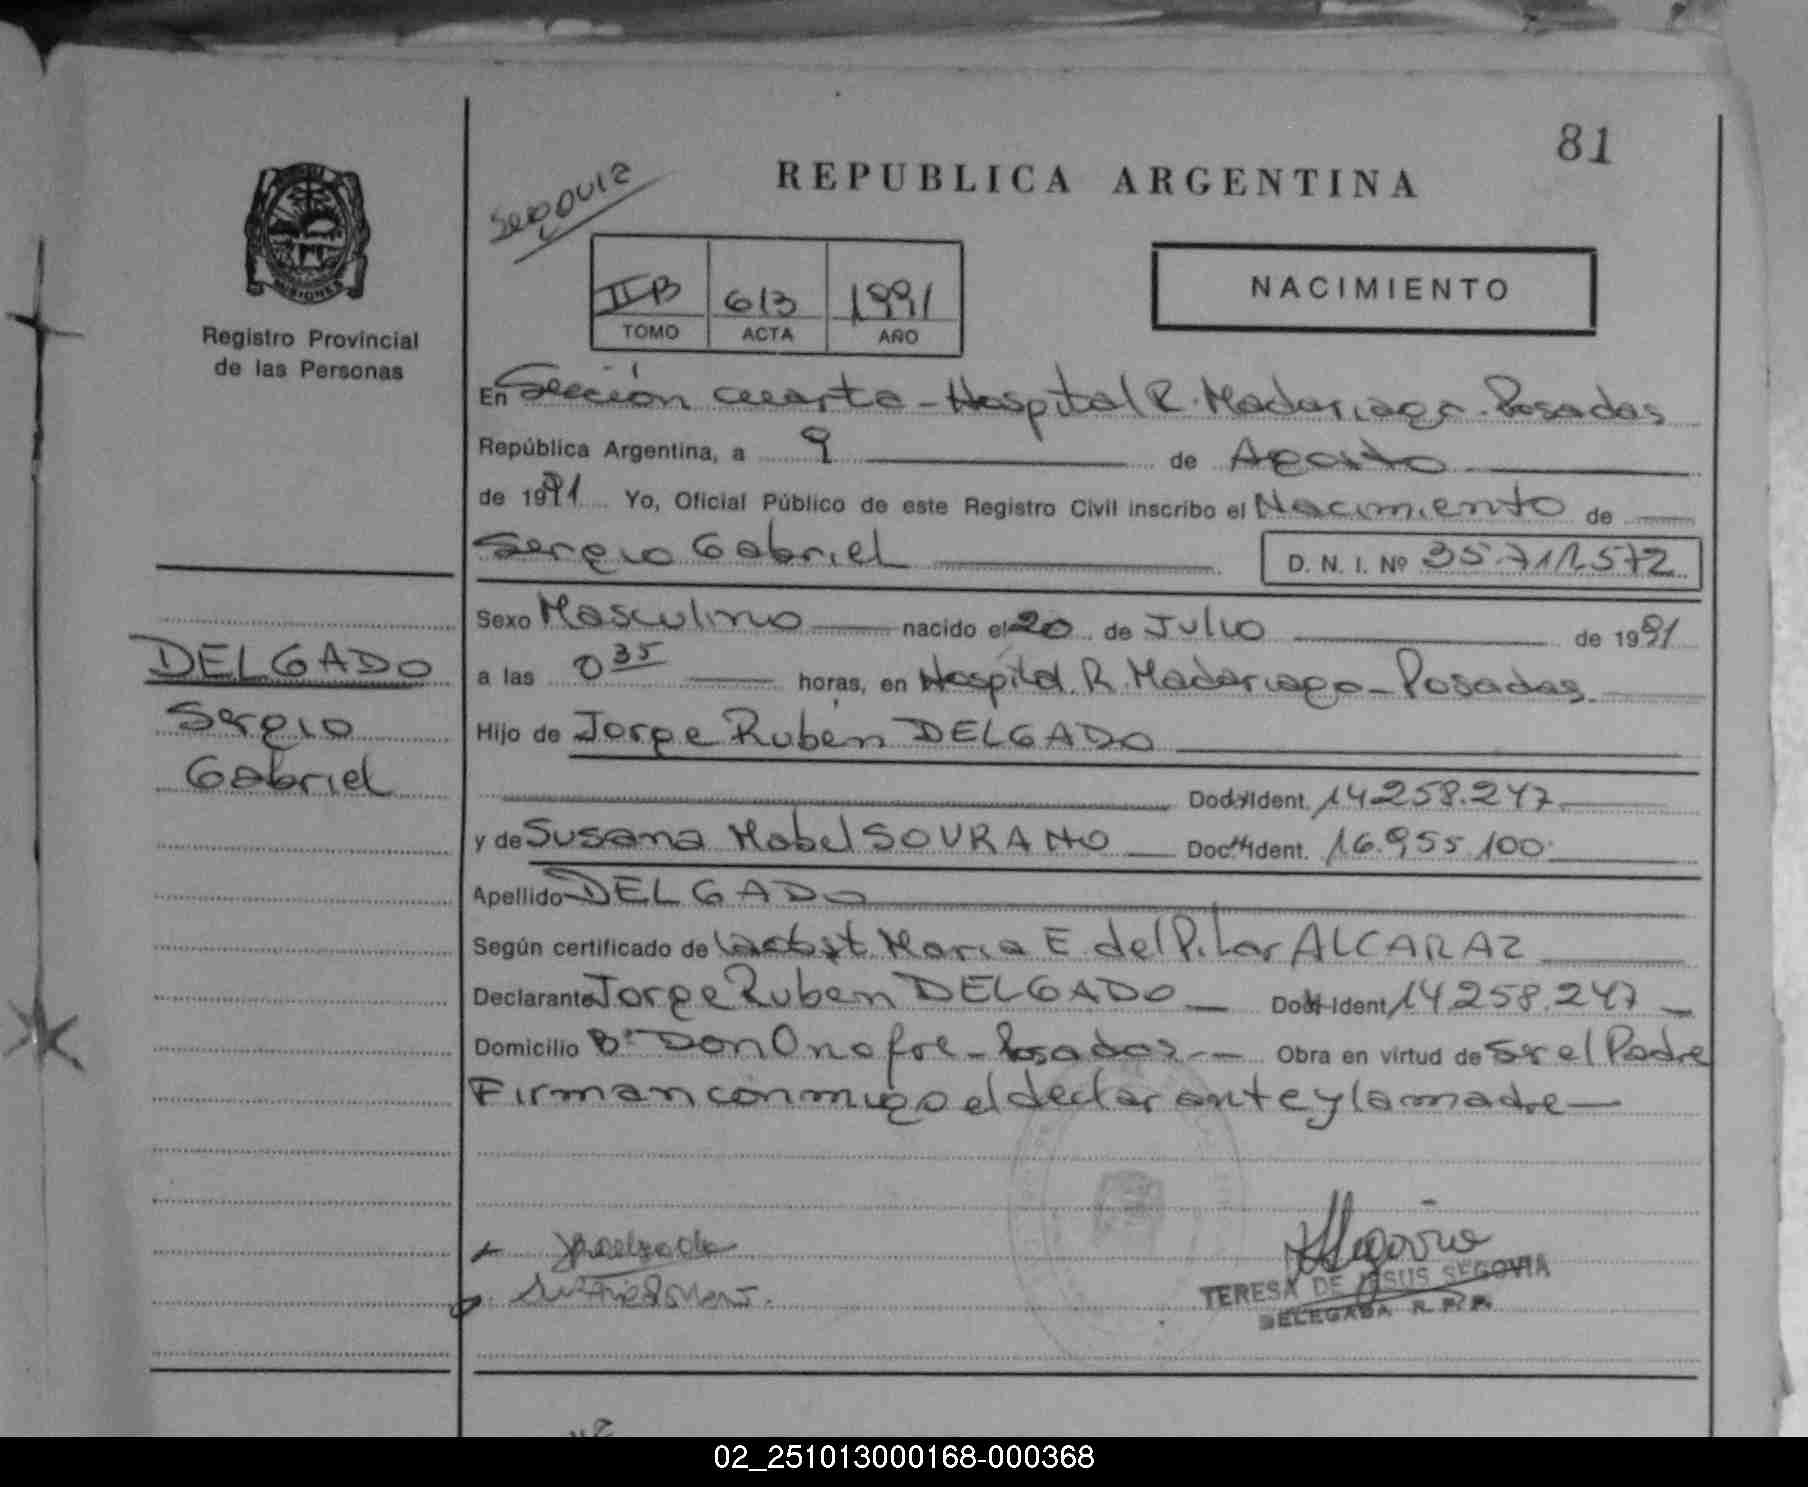 81
REPUBLICA ARGENTINA
MISIONES
Registro Provincial
de las Personas
IIB 613 1991
TOMO ACTA AÑO
NACIMIENTO
En Sección cuarta - Hospital R. Madariaga - Posadas
República Argentina, a 9 de Agosto
de 1991 Yo, Oficial Público de este Registro Civil inscribo el Nacimiento de
Sergio Gabriel
D. N. I. Nº 35.711.572
DELGADO
Sergio
Gabriel
Sexo Masculino nacido el 20 de Julio de 1991
a las 0 35 horas, en Hospital R. Madariaga - Posadas
Hijo de Jorge Rubén DELGADO
Doc. Ident. 14.258.247
y de Susana Mabel SOURANO Doc. Ident. 16.955.100
Apellido DELGADO
Según certificado de la obst. Maria E. del Pilar ALCARAZ
Declarante Jorge Ruben DELGADO Doc. Ident. 14.258.247
Domicilio Bº Don Onofre - Posadas - Obra en virtud de ser el Padre
Firman conmigo el declarante y la madre
TERESA DE JESUS SEGOVIA
DELEGADA R. P. P.
02_251013000168-000368